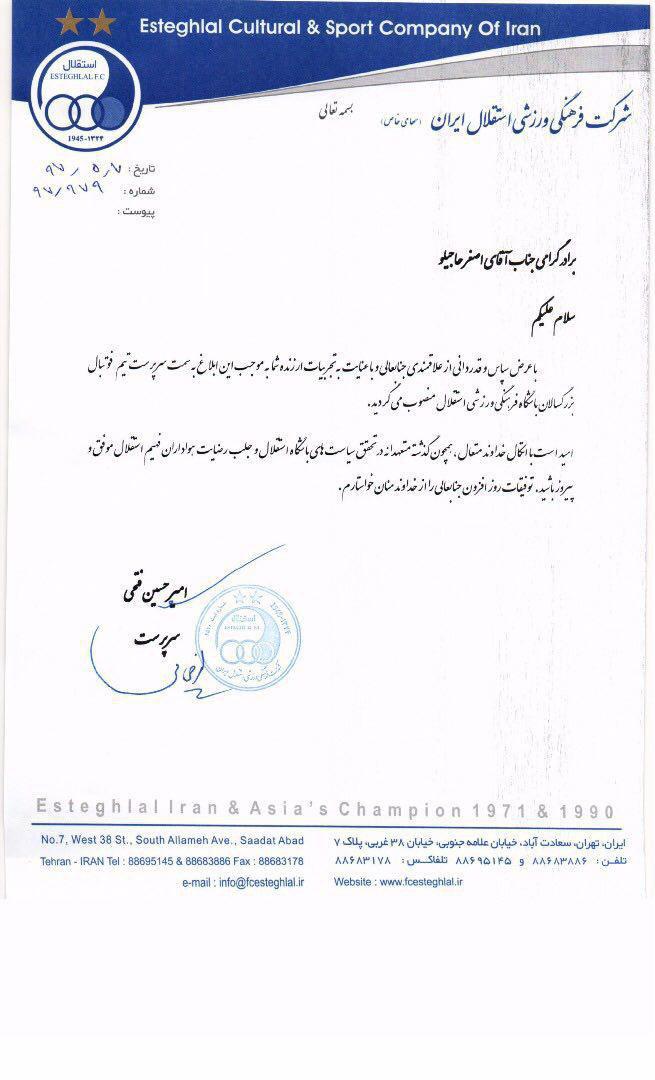 Esteghlal Cultural & Sport Company Of Iran
استقلال
ESTEGHLAL F.C
1945-۱۳۲۴
شرکت فرهنگی ورزشی استقلال ایران (سهامی خاص)
بسمه تعالی
تاریخ : ۹۷/۵/۷
شماره : ۹۷/۹۷۹
پیوست :
برادر گرامی جناب آقای اصغر حاجیلو
سلام علیکم
با عرض سپاس و قدردانی از علاقمندی جنابعالی و با عنایت به تجربیات ارزنده شما به موجب این ابلاغ به سمت سرپرست تیم فوتبال
بزرگسالان باشگاه فرهنگی ورزشی استقلال منصوب می گردید.
امید است با اتکال خداوند متعال، همچون گذشته متعهدانه در تحقق سیاست های باشگاه استقلال و جلب رضایت هواداران فهیم استقلال موفق و
پیروز باشید. توفیقات روز افزون جنابعالی را از خداوند منان خواستارم.
امیرحسین فتحی
سرپرست
استقلال
ESTEGHLAL F.C
شرکت فرهنگی ورزشی استقلال ایران
Esteghlal Iran & Asia's Champion 1971 & 1990
No.7, West 38 St., South Allameh Ave., Saadat Abad
Tehran - IRAN Tel : 88695145 & 88683886 Fax : 88683178
e-mail : info@fcesteghlal.ir
ایران، تهران، سعادت آباد، خیابان علامه جنوبی، خیابان ۳۸ غربی، پلاک ۷
تلفن : ۸۸۶۸۳۸۸۶ و ۸۸۶۹۵۱۴۵ تلفاکس : ۸۸۶۸۳۱۷۸
Website : www.fcesteghlal.ir